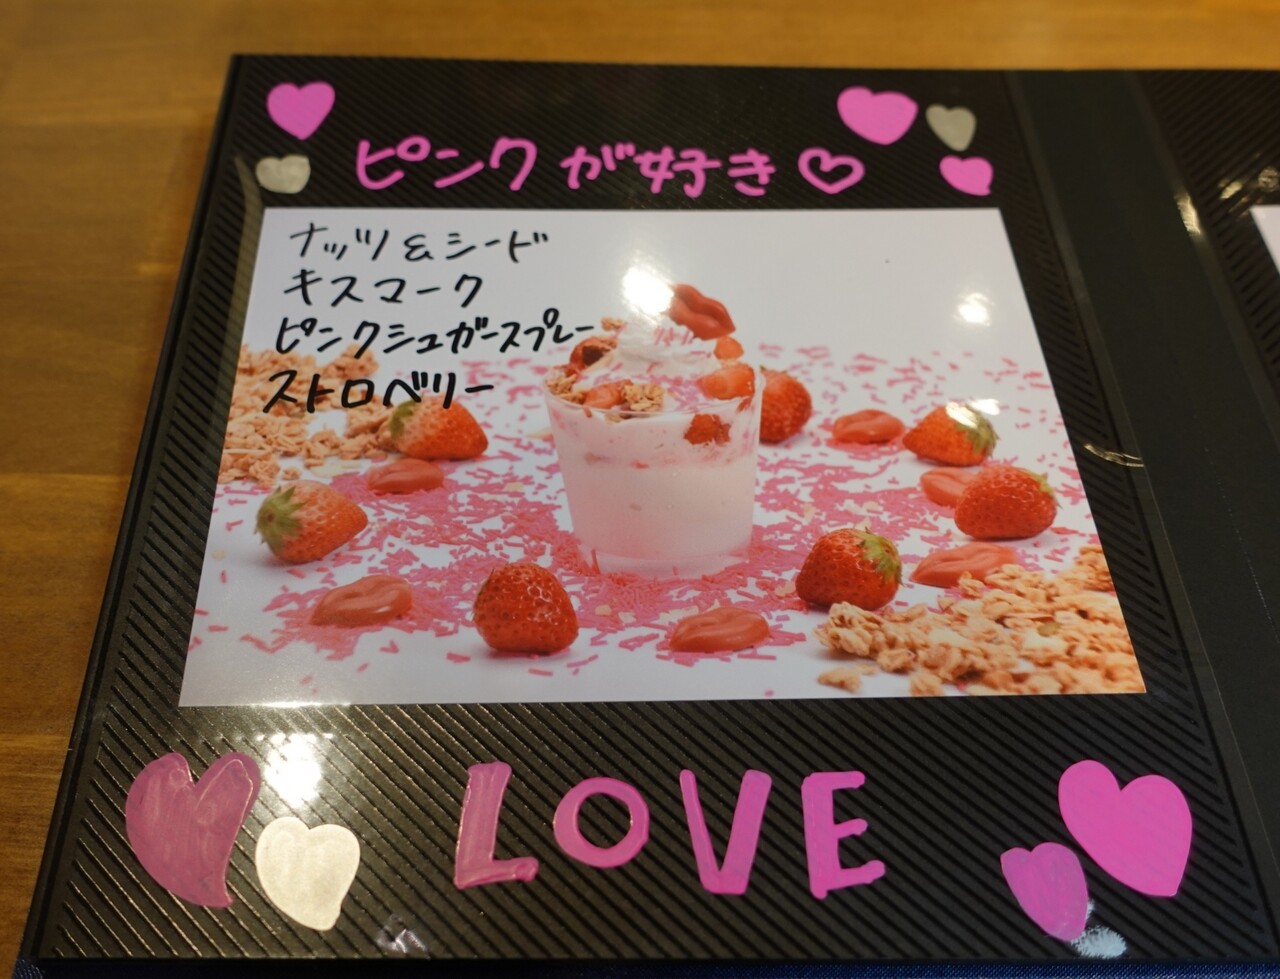 ピンクが好き♡
ナッツ&シード
キスマーク
ピンクシュガースプレー
ストロベリー
LOVE